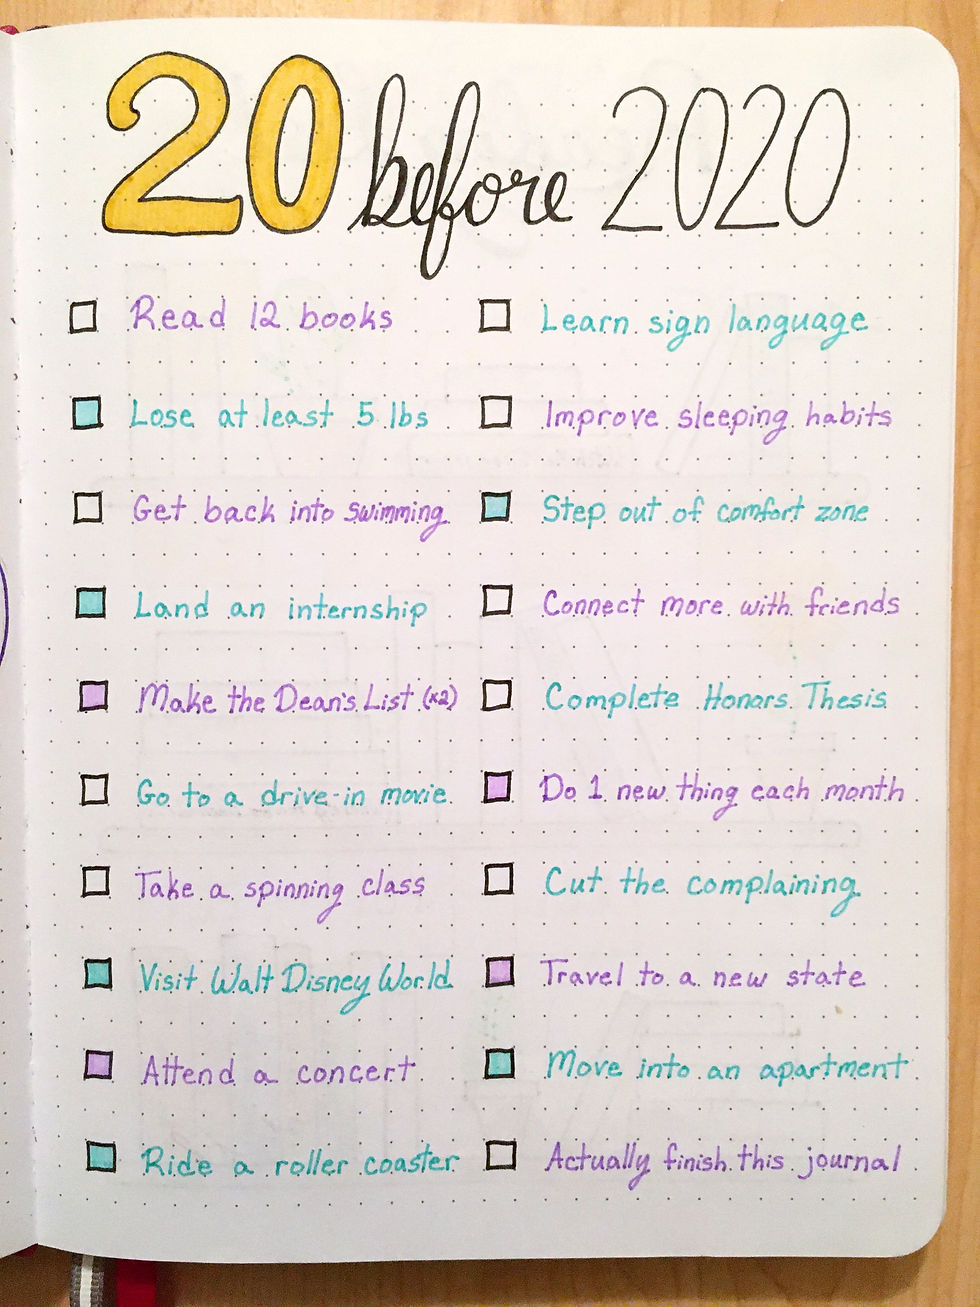 20 before 2020
Read 12 books
Lose at least 5 lbs
Get back into swimming
Land an internship
Make the Dean's List (x2)
Go to a drive-in movie
Take a spinning class
Visit Walt Disney World
Attend a concert
Ride a roller coaster
Learn sign language
Improve sleeping habits
Step out of comfort zone
Connect more with friends
Complete Honors Thesis
Do 1 new thing each month
Cut the complaining
Travel to a new state
Move into an apartment
Actually finish this journal